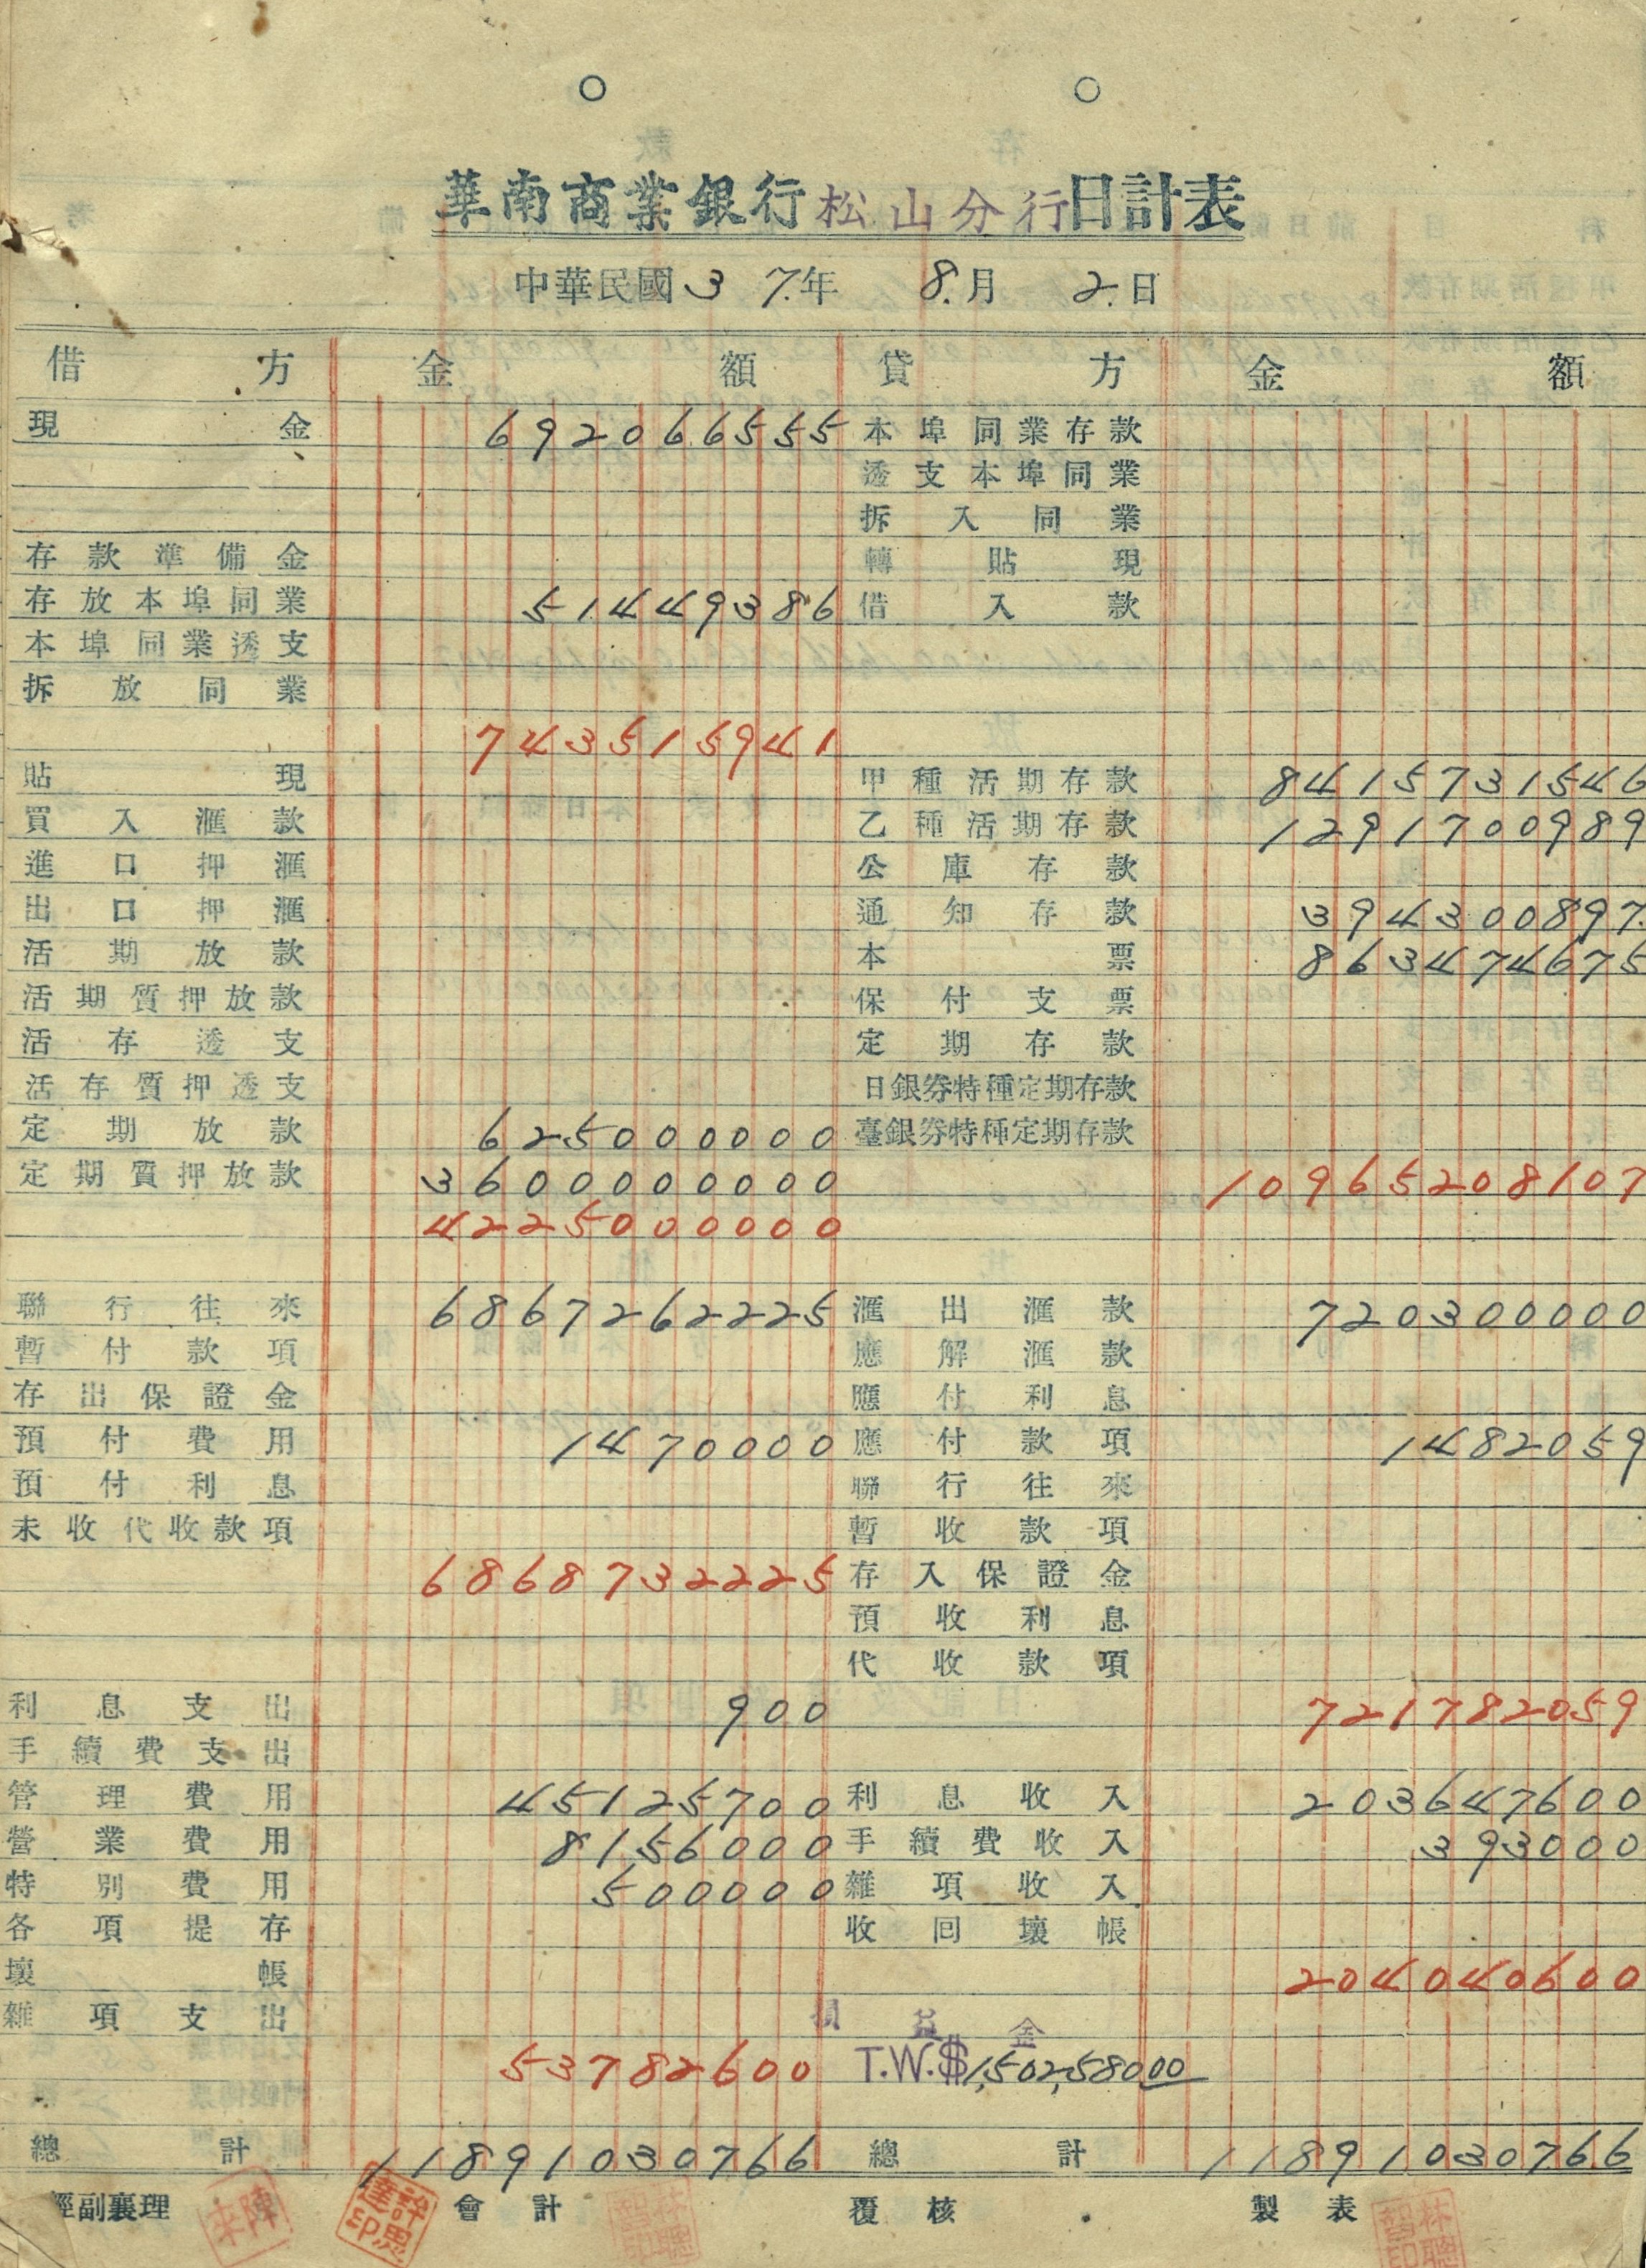 華南商業銀行松山分行日計表
中華民國37年 8月 2日
借方 金額 貸方 金額
現金 692066555 本埠同業存款
透支本埠同業
拆入同業
存款準備金 轉貼現
存放本埠同業 51449386 借入款
本埠同業透支
拆放同業
743515941
貼現 甲種活期存款 8415731546
買入滙款 乙種活期存款 1291700989
進口押滙 公庫存款
出口押滙 通知存款 394300897
活期放款 本票 863474675
活期質押放款 保付支票
活存透支 定期存款
活存質押透支 日銀券特種定期存款
定期放款 625000000 臺銀券特種定期存款
定期質押放款 3600000000 10965208107
4225000000
聯行往來 6867262225 滙出滙款 720300000
暫付款項 應解滙款
存出保證金 應付利息
預付費用 1470000 應付款項 1482059
預付利息 聯行往來
未收代收款項 暫收款項
6868732225 存入保證金
預收利息
代收款項
利息支出 900 721782059
手續費支出
管理費用 45125700 利息收入 203647600
營業費用 8156000 手續費收入 393000
特別費用 500000 雜項收入
各項提存 收回壞帳
壞帳 204040600
雜項支出 損益金
53782600 T.W.$1,502,58000
總計 11891030766 總計 11891030766
經副襄理 會計 覆核 製表